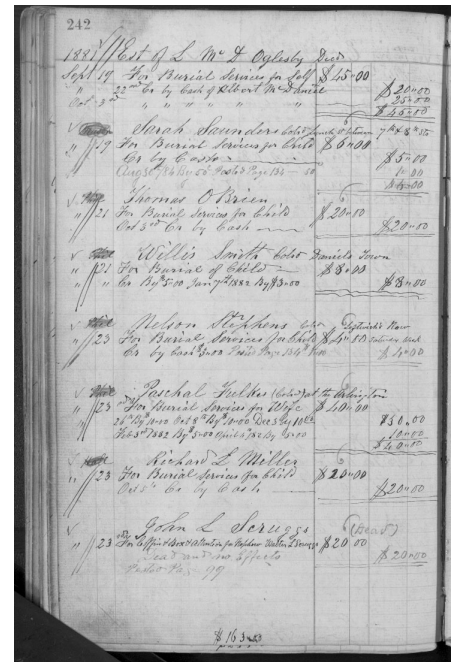 242
1881 // Est of L McD Oglesby Died
Sept 19 For Burial Services for Self $45.00
" 22nd Cr by Cash of Albert McDaniel $20.00
Oct 3rd " " " " " 25.00
$45.00
Sarah Saunders Cold 7th & 8th Sts
" 19 For Burial Services for Child $6.00
Cr by Cash $5.00
Aug 30/86 By 50 Posted Page 134 50
Thomas O'Brien
" 21 For Burial Services for Child $20.00
Oct 3rd Cr by Cash $20.00
Willis Smith Cold Daniels Town
" 21 For Burial of Child $8.00
" " Cr By $5.00 Jany 7th 1882 By $3.00 $8.00
Nelson Stephens Cold Row
" 23 For Burial Services for Child $4.00
Cr by Cash $3.00 Posted Page 134 $4.00
Paschal Fulkes (Cold) at the Arlington
" 23 For Burial Services for Wife $40.00
26th By $10.00 Oct 8th By $10.00 Dec 3 By 10.00 $30.00
Feb 3rd 1882 By $5.00 April 6/82 By $5.00 10.00
$40.00
Richard L Miller
" 23 For Burial Services for Child $20.00
Oct 3rd Cr by Cash $20.00
John L Scruggs (Dead)
" 23 For Coffin & Box & Attention for Nephew Walter L Scruggs $20.00
Dead and no Effects $20.00
Posted Page 99
$163.00